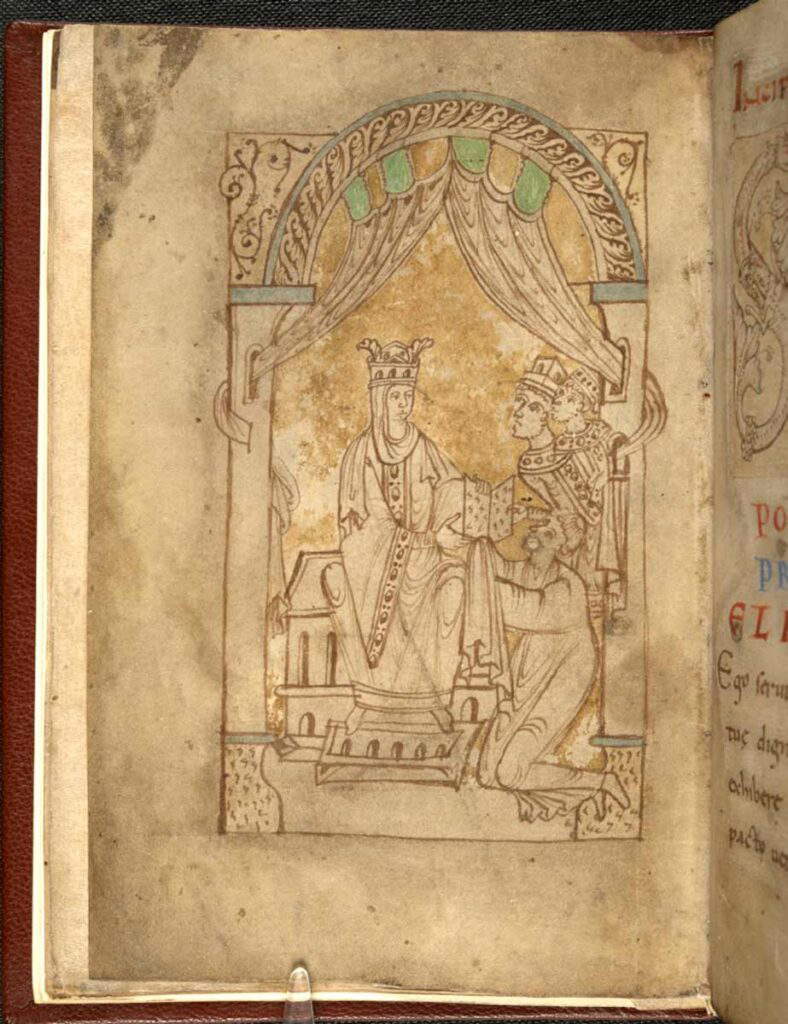 INCIP
PO
PR
ELI
Ego serui
tuę dign
exhibere
pacto